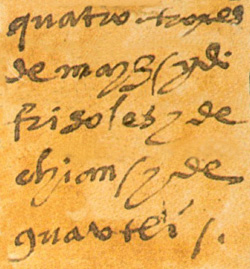 quatro troxes
de mayz y de
frisoles y de
chian y de
guautli.